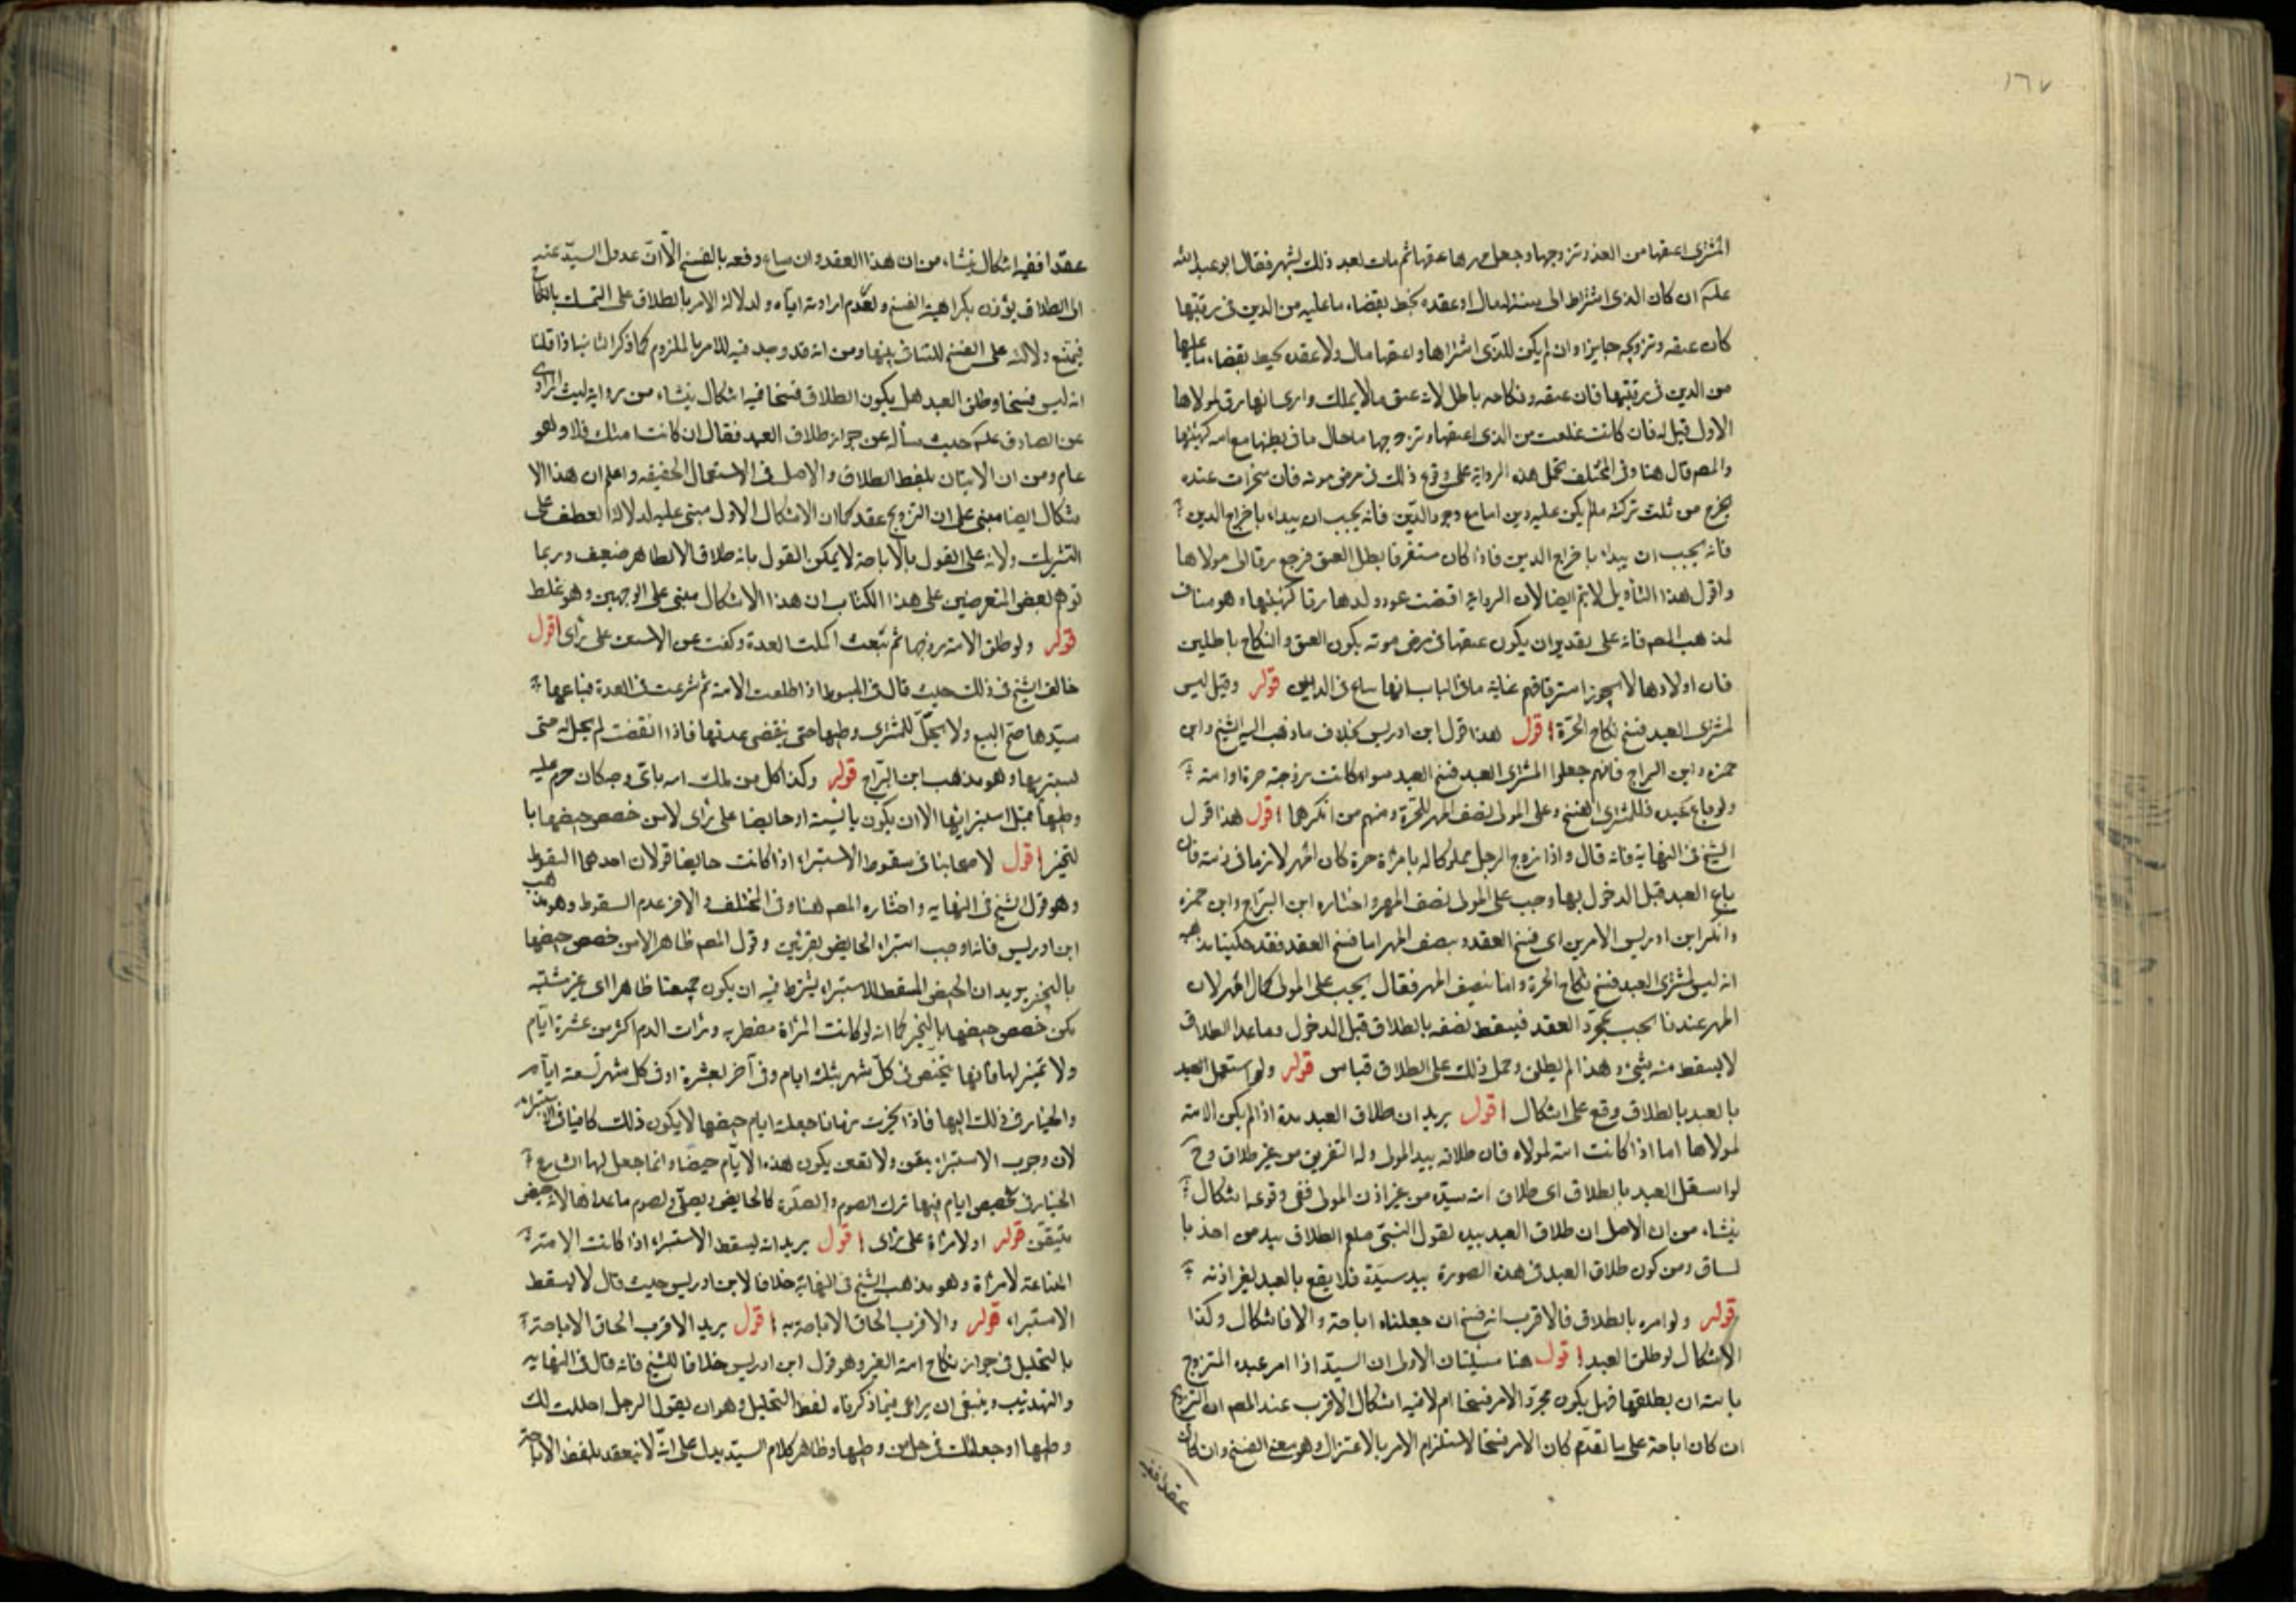 ١٦٧
المشترى اعتقها من الغد وتزوجها وجعل مهرها عتقها ثم مات بعد ذلك بشهر فقال ابو عبد الله
علم ان كان الذى اشتراها الى سنة له مال او عقدة تحيط بقضاء ما عليه من الدين فى رقبتها
كان عتقه وتزويجه جايزا وان لم يكن للذى اشتراها واعتقها مال ولا عقدة تحيط بقضاء ما عليها
من الدين فى رقبتها فان عتقه ونكاحه باطل لانه عتق ما لا يملك وارى انها رق لمولاها
الاول قيل له فان كانت علقت من الذى اعتقها وتزوجها ما حال ما فى بطنها مع امه كهيئتها
والمصم قال هنا وفى المختلف تحمل هذه الرواية على وقوع ذلك فى مرض موته فان منجزات عنده
يخرج من ثلث تركته ما لم يكن عليه دين اما مع وجود الدين فانه يجب ان يبداء باخراج الدين
فانه يجب ان يبداء باخراج الدين فاذا كان مستغرقا بطل العتق فرجع رقا الى مولاها
واقول هذا التأويل لا يتم ايضا لان الرواية اقتضت عود ولدها رقا كهيئتها وهو مناف
لمذهب المصم فانه على تقدير ان يكون عتقها فى مرض موته يكون العتق والنكاح باطلين
فان اولادها لا يجوز استرقاقهم غاية ما فى الباب انها تباع فى الدين قوله وقيل ليس
لمشترى العبد فسخ نكاح الحرة اقول هذا قول ابن ادريس بخلاف ما ذهب اليه الشيخ وابن
حمزه وابن البراج فانهم جعلوا لمشترى العبد فسخ العبد سواء كانت زوجته حرة او امة
ولو باع عبده فللمشترى الفسخ وعلى المولى نصف المهر للحرة ومنهم من انكرها اقول هذا قول
الشيخ فى النهاية فانه قال واذا زوج الرجل مملوكا له بامرأة حرة كان المهر لازما فى ذمته فان
باع العبد قبل الدخول بها وجب على المولى نصف المهر واختاره ابن البراج وابن حمزه
وانكر ابن ادريس الامرين اى فسخ العقد ونصف المهر اما فسخ العقد فقد حكينا مذهبه
انه ليس لمشترى العبد فسخ نكاح الحرة واما نصف المهر فقال يجب على المولى كمال المهر لان
المهر عندنا يجب بمجرد العقد فيسقط نصفه بالطلاق قبل الدخول وما عدا الطلاق
لا يسقط منه شئ وهذا لم يطلق وحمل ذلك على الطلاق قياس قوله ولو استقل العبد
بالعبد بالطلاق وقع على اشكال اقول يريد ان طلاق العبد بيده اذا لم يكن الامة
لمولاها اما اذا كانت امة لمولاه فان طلاقه بيد المولى وله التفريق من غير طلاق وح
لو استقل العبد بالطلاق اى طلاق امة سيده من غير اذن المولى ففى وقوعه اشكال
ينشاء من ان الاصل ان طلاق العبد بيده لقول النبى صلع الطلاق بيد من اخذ با
لساق ومن كون طلاق العبد فى هذه الصورة بيد سيده فلا يقع بالعبد لغير اذنه
قوله ولو امره بالطلاق فالاقرب انه فسخ ان جعلناه اباحة والا فاشكال وكذا
الاشكال لو طلق العبد اقول هنا مسئلتان الاولى ان السيد اذا امر عبده المتزوج
بامته ان يطلقها فهل يكون مجرد الامر فسخا ام لا فيه اشكال الاقرب عند المصم ان التزويج
ان كان اباحة على ما تقدم كان الامر فسخا لاستلزام الامر بالاعتزال وهو معنى الفسخ وان كان
عقدا ففيه
عقدا ففيه اشكال ينشاء من ان هذا العقد وان ساغ دفعه بالفسخ الا ان عدول السيد عنه
الى الطلاق يؤذن بكراهية الفسخ ولعدم ارادته اياه ولدلالة الامر بالطلاق على التمسك بالنكاح
فيمتنع دلالته على الفسخ للتنافى بينهما ومن انه قد وجد فيه للامر بالملزوم كما ذكر الثانيه اذا قلنا
انه ليس فسخا وطلق العبد هل يكون الطلاق فسخا فيه اشكال ينشاء من رواية ليث المرادى
عن الصادق علم حيث سأله عن جواز طلاق العبد فقال ان كانت امتك فلا وهو
عام ومن ان الاتيان بلفظ الطلاق والاصل فى الاستعمال الحقيقه واعلم ان هذا الا
شكال ايضا مبنى على ان التزويج عقد كما ان الاشكال الاول مبنى عليه لدلالة العطف على
التشريك ولانه على القول بالاباحة لا يمكن القول بانه طلاق الا بظاهر ضعيف وربما
توهم بعض المتعرضين على هذا الكتاب ان هذا الاشكال مبنى على الوجهين وهو غلط
قوله ولو طلق الامة زوجها ثم بيعت اكملت العدة وكفت عن الاستبراء على رأى اقول
خالف الشيخ فى ذلك حيث قال فى المبسوط اذا طلقت الامة ثم شرعت فى العدة فباعها
سيدها صح البيع ولا يحل للمشترى وطيها حتى ينقضى عدتها فاذا انقضت لم يحل له حتى
يستبريها وهو مذهب ابن البراج قوله وكذا كل من ملك امه باى وجه كان حرم عليه
وطيها قبل استبرائها الا ان يكون يائسة او حايضا على رأى لا من خصص حيضها با
لتخيز اقول لاصحابنا فى سقوط الاستبراء اذا كانت حايضا قولان احدهما السقوط
وهو قول الشيخ فى النهايه واختاره المصم هنا وفى المختلف والاخر عدم السقوط وهو مذهب
ابن ادريس فانه اوجب استبراء الحايض بقرئين وقول المصم ظاهر الا من خصص حيضها
بالتخيز يريد ان الحيض المسقط للاستبراء يشترط فيه ان يكون حيضا ظاهرا اى غير مشتبه
كمن خصص حيضها بالتخيز كما انه لو كانت المرأة مضطربه ورأت الدم اكثر من عشرة ايام
ولا تميز لها فانها تتحيض فى كل شهر بثلثة ايام وفى آخر بعشرة او فى كل شهر سبعة ايام
والخيار فى ذلك اليها فاذا تخيرت زمانا جعلته ايام حيضها لا يكون ذلك كافيا فى الاستبراء
لان وجوب الاستبراء يقين ولا تعين بكون هذه الايام حيضا وانما جعل لها الشارع
الخيار فى تخصيص ايام فيها ترك الصوم والصلوة كالحايض وتصلى وتصوم ما عداها لا لانه حيض
متيقن قوله او لامرأة على رأى اقول يريد انه يسقط الاستبراء اذا كانت الامة
المبتاعة لامرأة وهو مذهب الشيخ فى النهاية خلافا لابن ادريس حيث قال لا يسقط
الاستبراء قوله والاقرب الحاق الاباحة به اقول يريد الاقرب الحاق الاباحة
بالتحليل فى جواز نكاح امة الغير وهو قول ابن ادريس خلافا للشيخ فانه قال فى النهايه
والتهذيب وينبغى ان يراعى فيما ذكرناه لفظ التحليل وهو ان يقول الرجل احللت لك
وطيها او جعلتك فى حل من وطيها وظاهر كلام السيد يدل على انه لا ينعقد بلفظ الاباحة